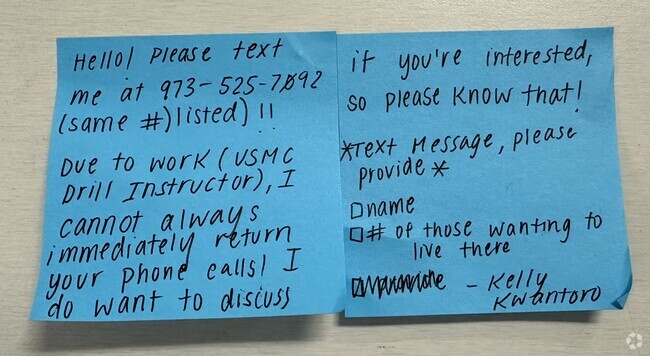 Hello! Please text
me at 973-525-7092
(same #) listed) !!
Due to work (USMC
Drill Instructor), I
cannot always
immediately return
your phone calls! I
do want to discuss
if you're interested,
so please know that!
*Text Message, please
provide*
□ name
□ # of those wanting to
live there
□
- Kelly
Kwantoro